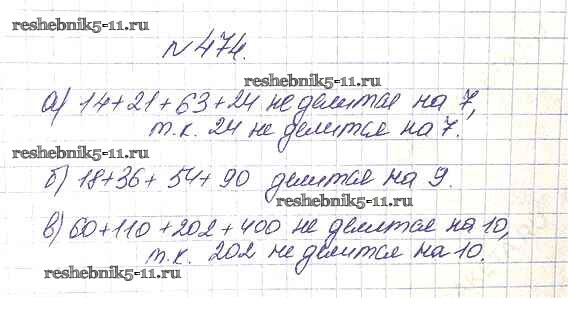 reshebnik5-11.ru
№474.
reshebnik5-11.ru
а) 14+21+63+24 не делится на 7,
т.к. 24 не делится на 7.
reshebnik5-11.ru
б) 18+36+54+90 делится на 9.
reshebnik5-11.ru
в) 60+110+202+400 не делится на 10,
т.к. 202 не делится на 10.
reshebnik5-11.ru